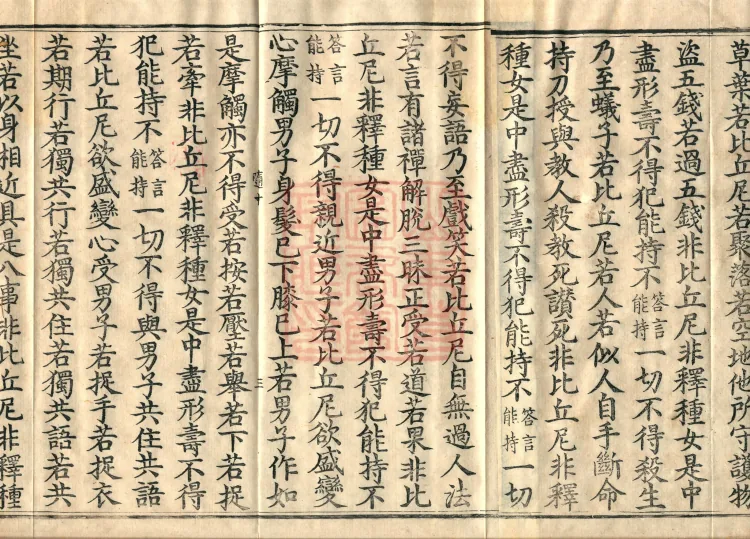 草葉若比丘尼若聚落若空地他所守護物
盜五錢若過五錢非比丘尼非釋種女是中
盡形壽不得犯能持不答言能持一切不得殺生
乃至蟻子若比丘尼若人若似人自手斷命
持刀授與教人殺教死讃死非比丘尼非釋
種女是中盡形壽不得犯能持不答言能持一切
不得妄語乃至戲笑若比丘尼自無過人法
若言有諸禪解脫三昧正受若道若果非比
丘尼非釋種女是中盡形壽不得犯能持不
答言能持一切不得親近男子若比丘尼欲盛變
心摩觸男子身髮已下膝已上若男子作如
隨十
三
是摩觸亦不得受若按若壓若舉若下若捉
若牽非比丘尼非釋種女是中盡形壽不得
犯能持不答言能持一切不得與男子共住共語
若比丘尼欲盛變心受男子若捉手若捉衣
若期行若獨共行若獨共住若獨共語若共
坐若以身相近具是八事非比丘尼非釋種